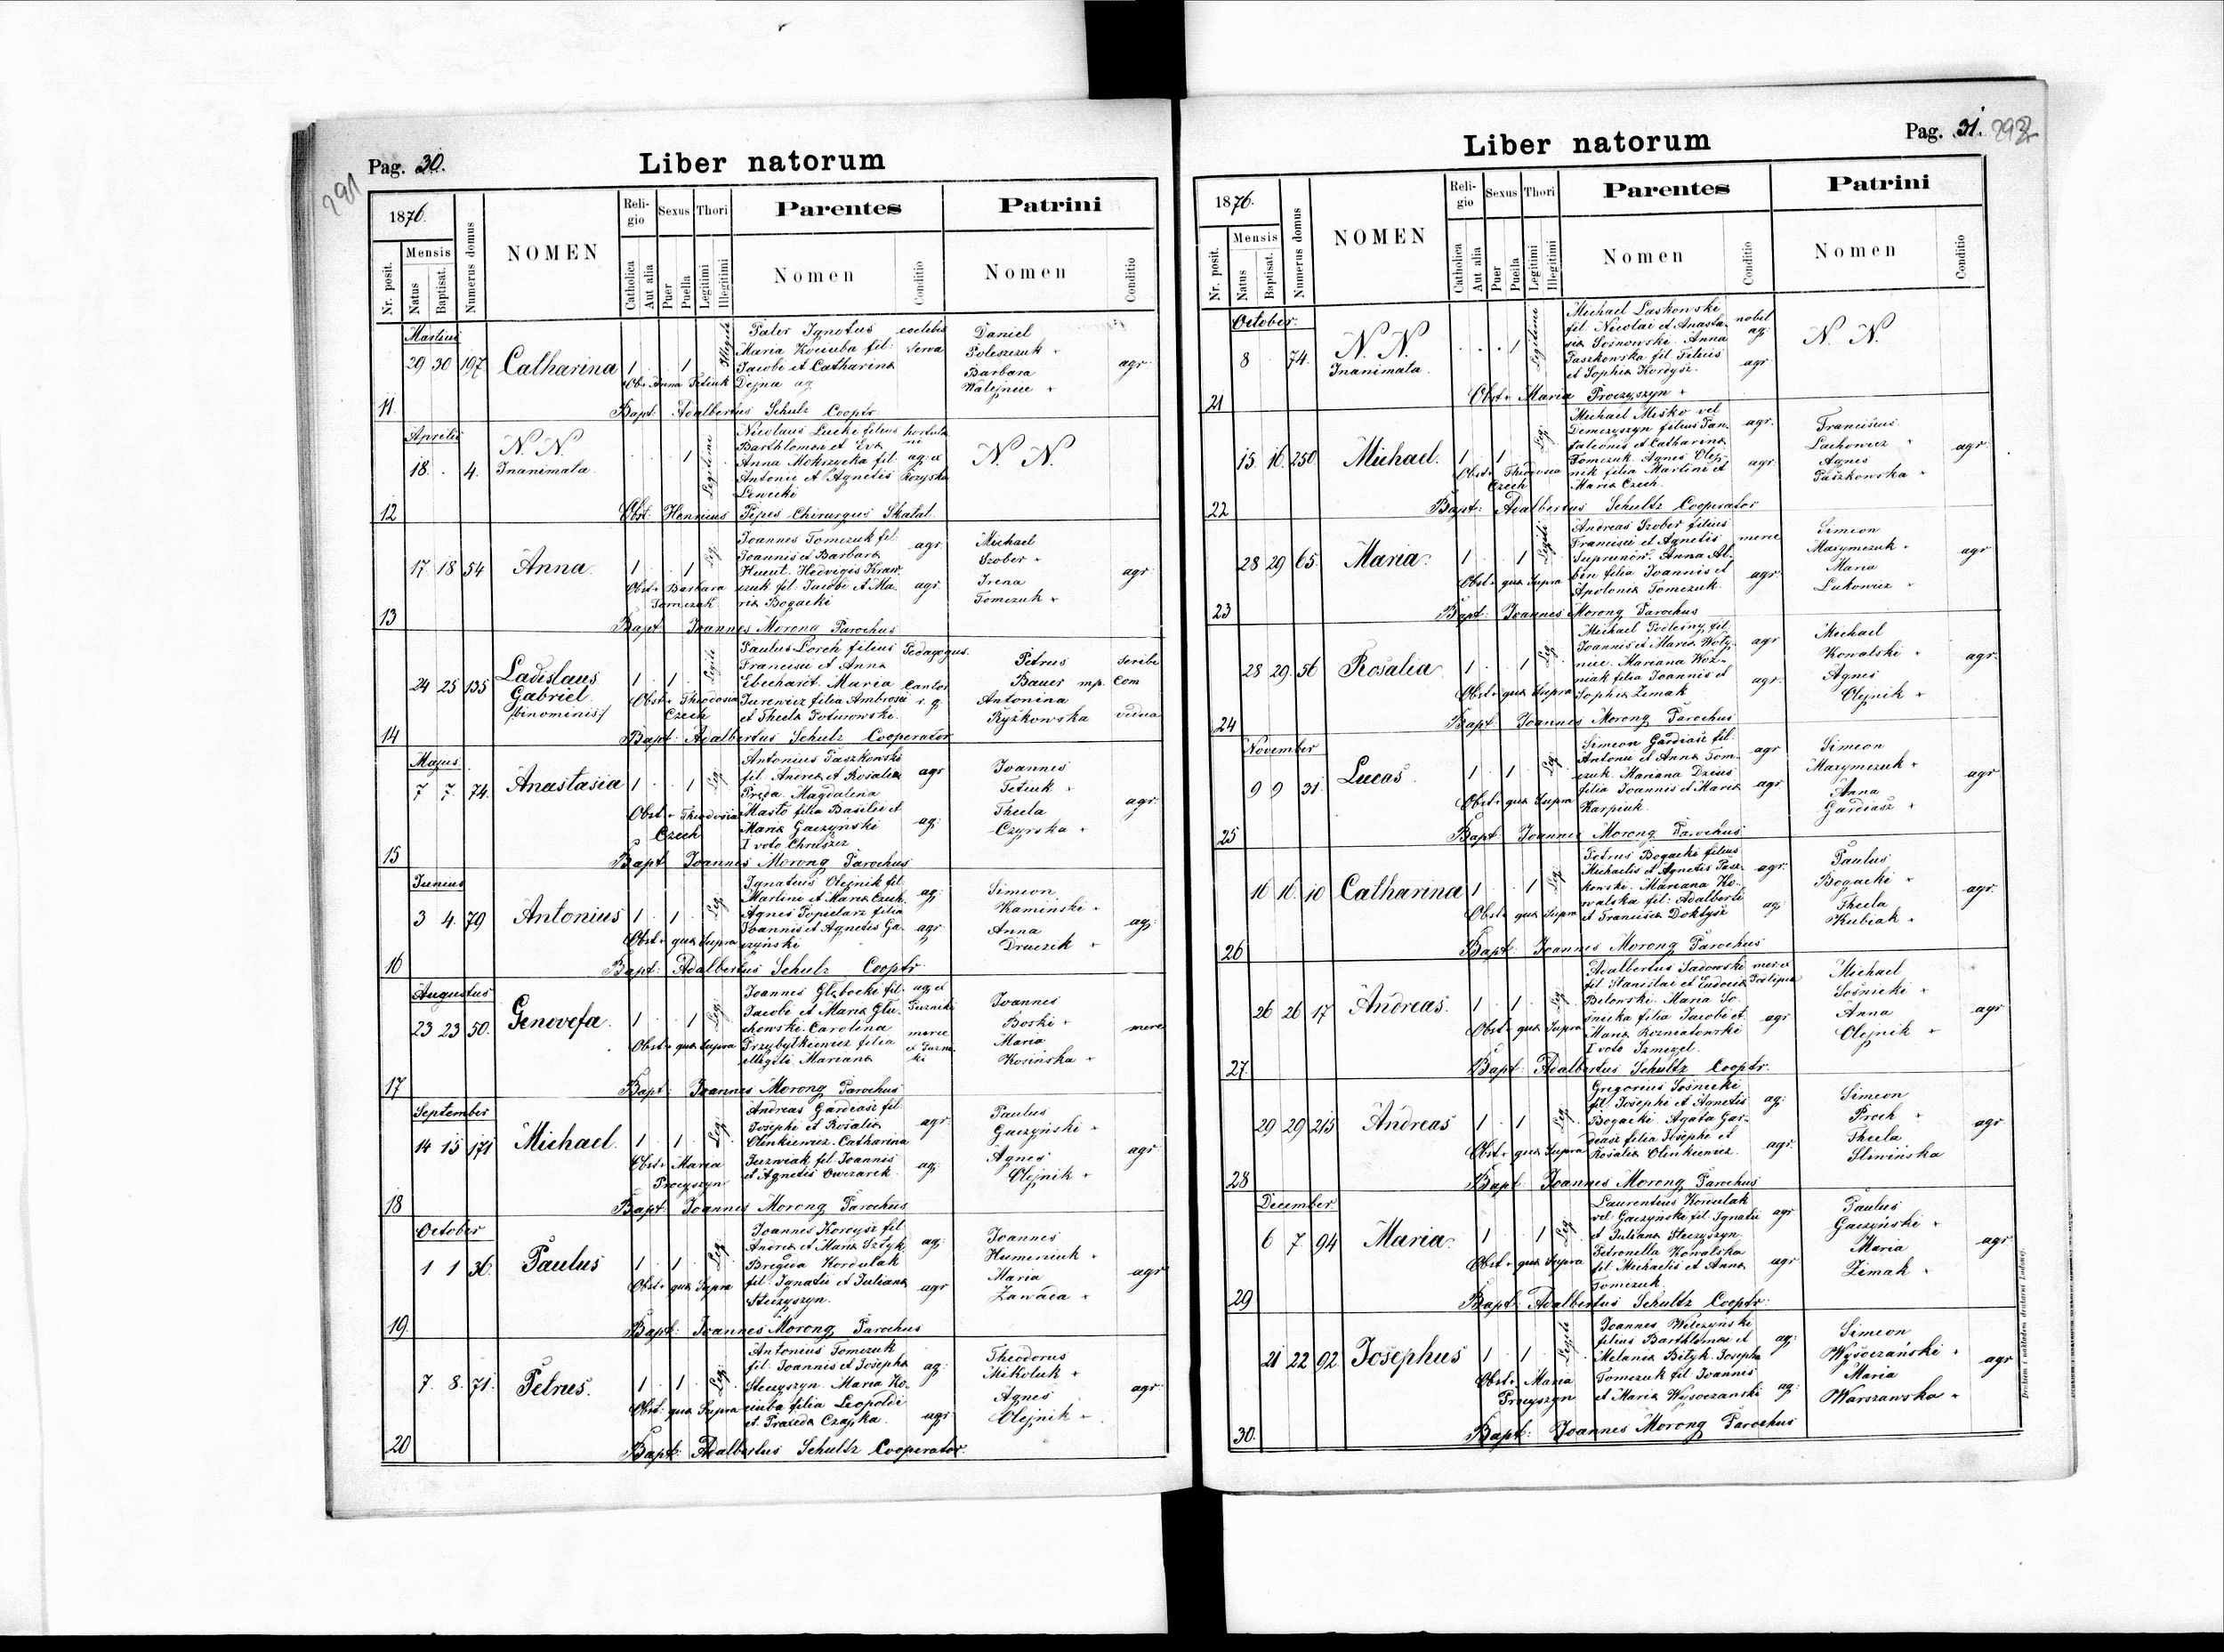 Pag. 30.
Liber natorum
291
1876.
Nr. posit.
Mensis
Natus
Baptisat.
Numerus domus
NOMEN
Religio
Catholica
Aut alia
Sexus
Puer
Puella
Thori
Legitimi
Illegitimi
Parentes
Nomen
Conditio
Patrini
Nomen
Conditio
Martius
11.
29 30 197
Catharina
1 1
Pater Ignotus coelebs
Maria Kociuba fil. serva
Jacobi et Catharina
Dejna ag
Obst. Anna Tetiuk
Daniel
Poleszczuk
Barbara
agr.
Bapt: Adalbertus Schulz Cooptr.
Aprilis
12
18. 4.
N. N.
Inanimata
1
Legitimi
Nicolaus Lucki filius
Barthlomei et Eva
Anna Mokrzycka fil. ag. ex
Antonii et Agnetis
Lewecki
N. N.
Obst: Henricus Pipes Chirurgus Skatat
13
17 18 54
Anna
1 1
Leg.
Joannes Tomczuk fil.
Joannis et Barbara agr
Hedvigis Kraw
czuk fil. Jacobi et Ma- agr.
ria Bogacki
Obst. Barbara
Tomczuk
Michael
Szober
Irena
Tomczuk
agr.
Bapt. Joannes Morong Parochus
14
24 25 135
Ladislaus
Gabriel
/binominis/
1 1
Paulus Lorch filius Pedagogus
Francisci et Anna
Eberhardt. Maria Cantor
Jurewicz filia Ambrosii r. g.
et Thecla Poturowski.
Obst. Theodosia
Czech
Petrus
Bauer mp.
Antonina
Ryżkowska vidua
Bapt: Adalbertus Schulz Cooperator
Majus
15
7 7. 74.
Anastasia
1 1
Leg.
Antonius Paszkowski
fil. Andrea et Rosalia agr
Pręda Magdalena
Masto filia Basilii et
Maria Gaczyński ag:
I voto Chruszcz
Obst. Theodosia
Czech
Joannes
Tetiuk
Thecla
Czyrska
agr.
Bapt Joannes Morong Parochus
Junius
16
3 4. 79
Antonius
1 1
Leg.
Ignatius Olejnik fil.
Martini et Maria Czech. ag:
Agnes Popielarz filia
Joannis et Agnetis Ga- agr
czyński
Obst. qua Supra
Simeon
Kamiński
Anna
Druczek
ag:
Bapt: Adalbertus Schulz Cooptr.
Augustus
17
23 23 50.
Genovefa
1 1
Leg.
Joannes Głębocki fil. ag. ex
Jacobi et Maria Glu-
chowski. Carolina
Przybytkiewicz filia
illegiti. Mariana
Obst. qua Supra
Joannes
Boski
Maria
Kosińska
merc
Bapt: Joannes Morong Parochus
September
18
14 15 171
Michael.
1 1
Leg.
Andreas Gardiasz fil.
Josephi et Rosalia agr.
Olinkiewicz. Catharina
Juzwiak fil. Joannis
et Agnetis Owczarek. ag:
Obst. Maria
Procyszyn
Paulus
Gaczyński
Agnes
Olejnik
agr.
Bapt. Joannes Morong Parochus
October
19.
1 1 36.
Paulus
1 1
Leg.
Joannes Kordysz fil
Andrea et Maria Sztyk ag:
Brigida Kordulak
fil. Ignatii et Juliana agr
Steczyszyn.
Obst. qua Supra
Joannes
Humeniuk
Maria
Zawada
agr
Bapt: Joannes Morong Parochus
20
7. 8. 71.
Petrus.
1 1
Leg.
Antonius Tomczuk
fil. Joannis et Josepha ag:
Steczyszyn. Maria Ko-
ciuba filia Leopoldi
et Praxeda Czajka. agr.
Obst. qua Supra
Theodorus
Mikoluk
Agnes
Olejnik
agr.
Bapt: Adalbertus Schultz Cooperator.
Liber natorum
Pag. 31.
1876.
Nr. posit.
Mensis
Natus
Baptisat.
Numerus domus
NOMEN
Religio
Catholica
Aut alia
Sexus
Puer
Puella
Thori
Legitimi
Illegitimi
Parentes
Nomen
Conditio
Patrini
Nomen
Conditio
October
21
8 74.
N. N.
Inanimata.
1
Legitimi
Michael Laskowski
fil. Nicolai et Anasta- nobil
sia Sosnowski. Anna ag:
Paszkowska fil. Felicis
et Sophia Kordysz. agr.
N. N.
Obst. Maria Procyszyn
22
15 16. 250
Michael.
1 1
Leg.
Michael Misko vel
Demczyszyn filius Pan- agr.
taleonis et Catharina
Tomczuk. Agnes Olej-
nik filia Martini et agr.
Maria Czech.
Obst. Theodosia
Czech
Franciscus
Lachowicz
Agnes
Paszkowska
agr
Bapt: Adalbertus Schultz Cooperator
23
28 29 65.
Maria.
1 1
Andreas Szober filius
Francisci et Agnetis merc
Suprunow. Anna Al-
bin filia Joannis et agr.
Apolonia Tomczuk.
Obst. qua Supra
Simeon
Maxymczuk
Maria
Lukowicz
agr
Bapt: Joannes Morong Parochus
24
28 29. 56
Rosalia
1 1
Leg.
Michael Podlesny fil.
Joannis et Maria Woty- agr
niec. Mariana Woz-
niak filia Joannis et agr.
Sophia Zimak
Obst. qua Supra
Michael
Kowalski
Agnes
Olejnik
agr.
Bapt: Joannes Morong Parochus
November
25
9 9 31.
Lucas.
1 1
Leg.
Simeon Gardiasz fil.
Antonii et Anna Tom- agr
czuk. Mariana Dzius
filia Joannis et Maria agr.
Karpiuk.
Obst. qua Supra
Simeon
Maxymczuk
Anna
Gardiasz
agr
Bapt: Joannes Morong Parochus
26
16 16. 10
Catharina
1 1
Leg.
Petrus Bogacki filius
Michaelis et Agnetis Pasz- agr.
kowski. Mariana Ko-
walska fil: Adalberti ag:
et Francisca Doktysz
Obst. qua Supra
Paulus
Bogacki
Thecla
Kubiak
agr.
Bapt: Joannes Morong Parochus
27.
26 26 17
Andreas.
1 1
Leg
Adalbertus Sadowski mer. ex
fil. Stanislai et Eudocia Podlipie
Bilowski. Maria So-
snicka filia Jacobi et agr
Maria Rozniatowski
I voto Szmigel.
Obst. qua Supra
Michael
Sośnicki
Anna
Olejnik
agr
Bapt: Adalbertus Schultz Cooptr.
28
29 29 215
Andreas
1 1
Leg.
Gregorius Sośnicki
fil. Josephi et Agnetis ag:
Bogacki. Agata Gar-
diasz filia Josephi et agr.
Rosalia Olinkiewicz.
Obst. qua Supra
Simeon
Proch
Thecla
Sliwińska
agr
Bapt: Joannes Morong Parochus
December
29
6 7 94
Maria.
1 1
Leg.
Laurentius Kordulak
vel Gaczyński fil. Ignatii agr
et Juliana Steczyszyn.
Petronella Kowalska
fil. Michaelis et Anna agr
Tomczuk.
Obst. qua Supra
Paulus
Gaczyński
Maria
Zimak
agr
Bapt: Adalbertus Schultz Cooptr.
30.
21 22 92
Josephus
1 1
Joannes Wilczyński
filius Barthlomei et ag:
Melania Bityk. Josepha
Tomczuk fil. Joannis
et Maria Wysoczanski ag:
Obst. Maria
Procyszyn
Simeon
Wysoczański
Maria
Warszawska
agr
Bapt: Joannes Morong Parochus